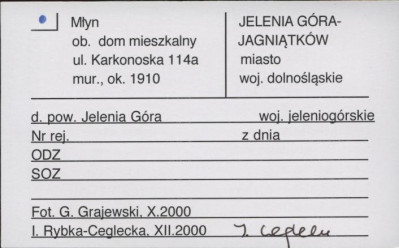 Młyn
ob. dom mieszkalny
ul. Karkonoska 114a
mur., ok. 1910
JELENIA GÓRA-
JAGNIĄTKÓW
miasto
woj. dolnośląskie
d. pow. Jelenia Góra woj. jeleniogórskie
Nr rej. z dnia
ODZ
SOZ
Fot. G. Grajewski, X.2000
I. Rybka-Ceglecka, XII.2000